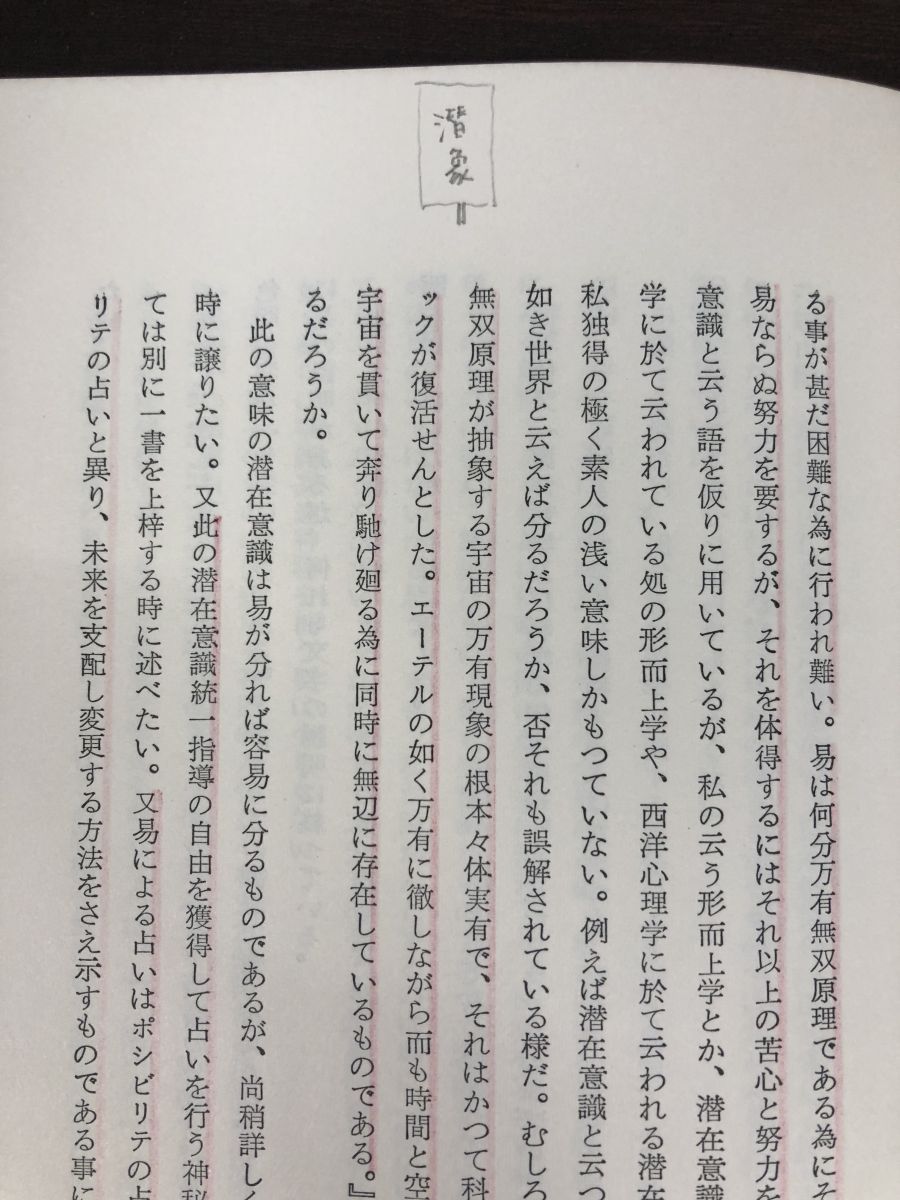 潜象
る事が甚だ困難な為に行われ難い。易は何分万有無双原理である為にそ
易ならぬ努力を要するが、それを体得するにはそれ以上の苦心と努力を
意識と云う語を仮りに用いているが、私の云う形而上学とか、潜在意識
学に於て云われている処の形而上学や、西洋心理学に於て云われる潜在
私独得の極く素人の浅い意味しかもつていない。例えば潜在意識と云つ
如き世界と云えば分るだろうか、否それも誤解されている様だ。むしろ
無双原理が抽象する宇宙の万有現象の根本々体実有で、それはかつて科
ックが復活せんとした。エーテルの如く万有に徹しながら而も時間と空
宇宙を貫いて奔り馳け廻る為に同時に無辺に存在しているものである。』
るだろうか。
此の意味の潜在意識は易が分れば容易に分るものであるが、尚稍詳しく
時に譲りたい。又此の潜在意識統一指導の自由を獲得して占いを行う神秘
ては別に一書を上梓する時に述べたい。又易による占いはポシビリテの占
リテの占いと異り、未来を支配し変更する方法をさえ示すものである事に